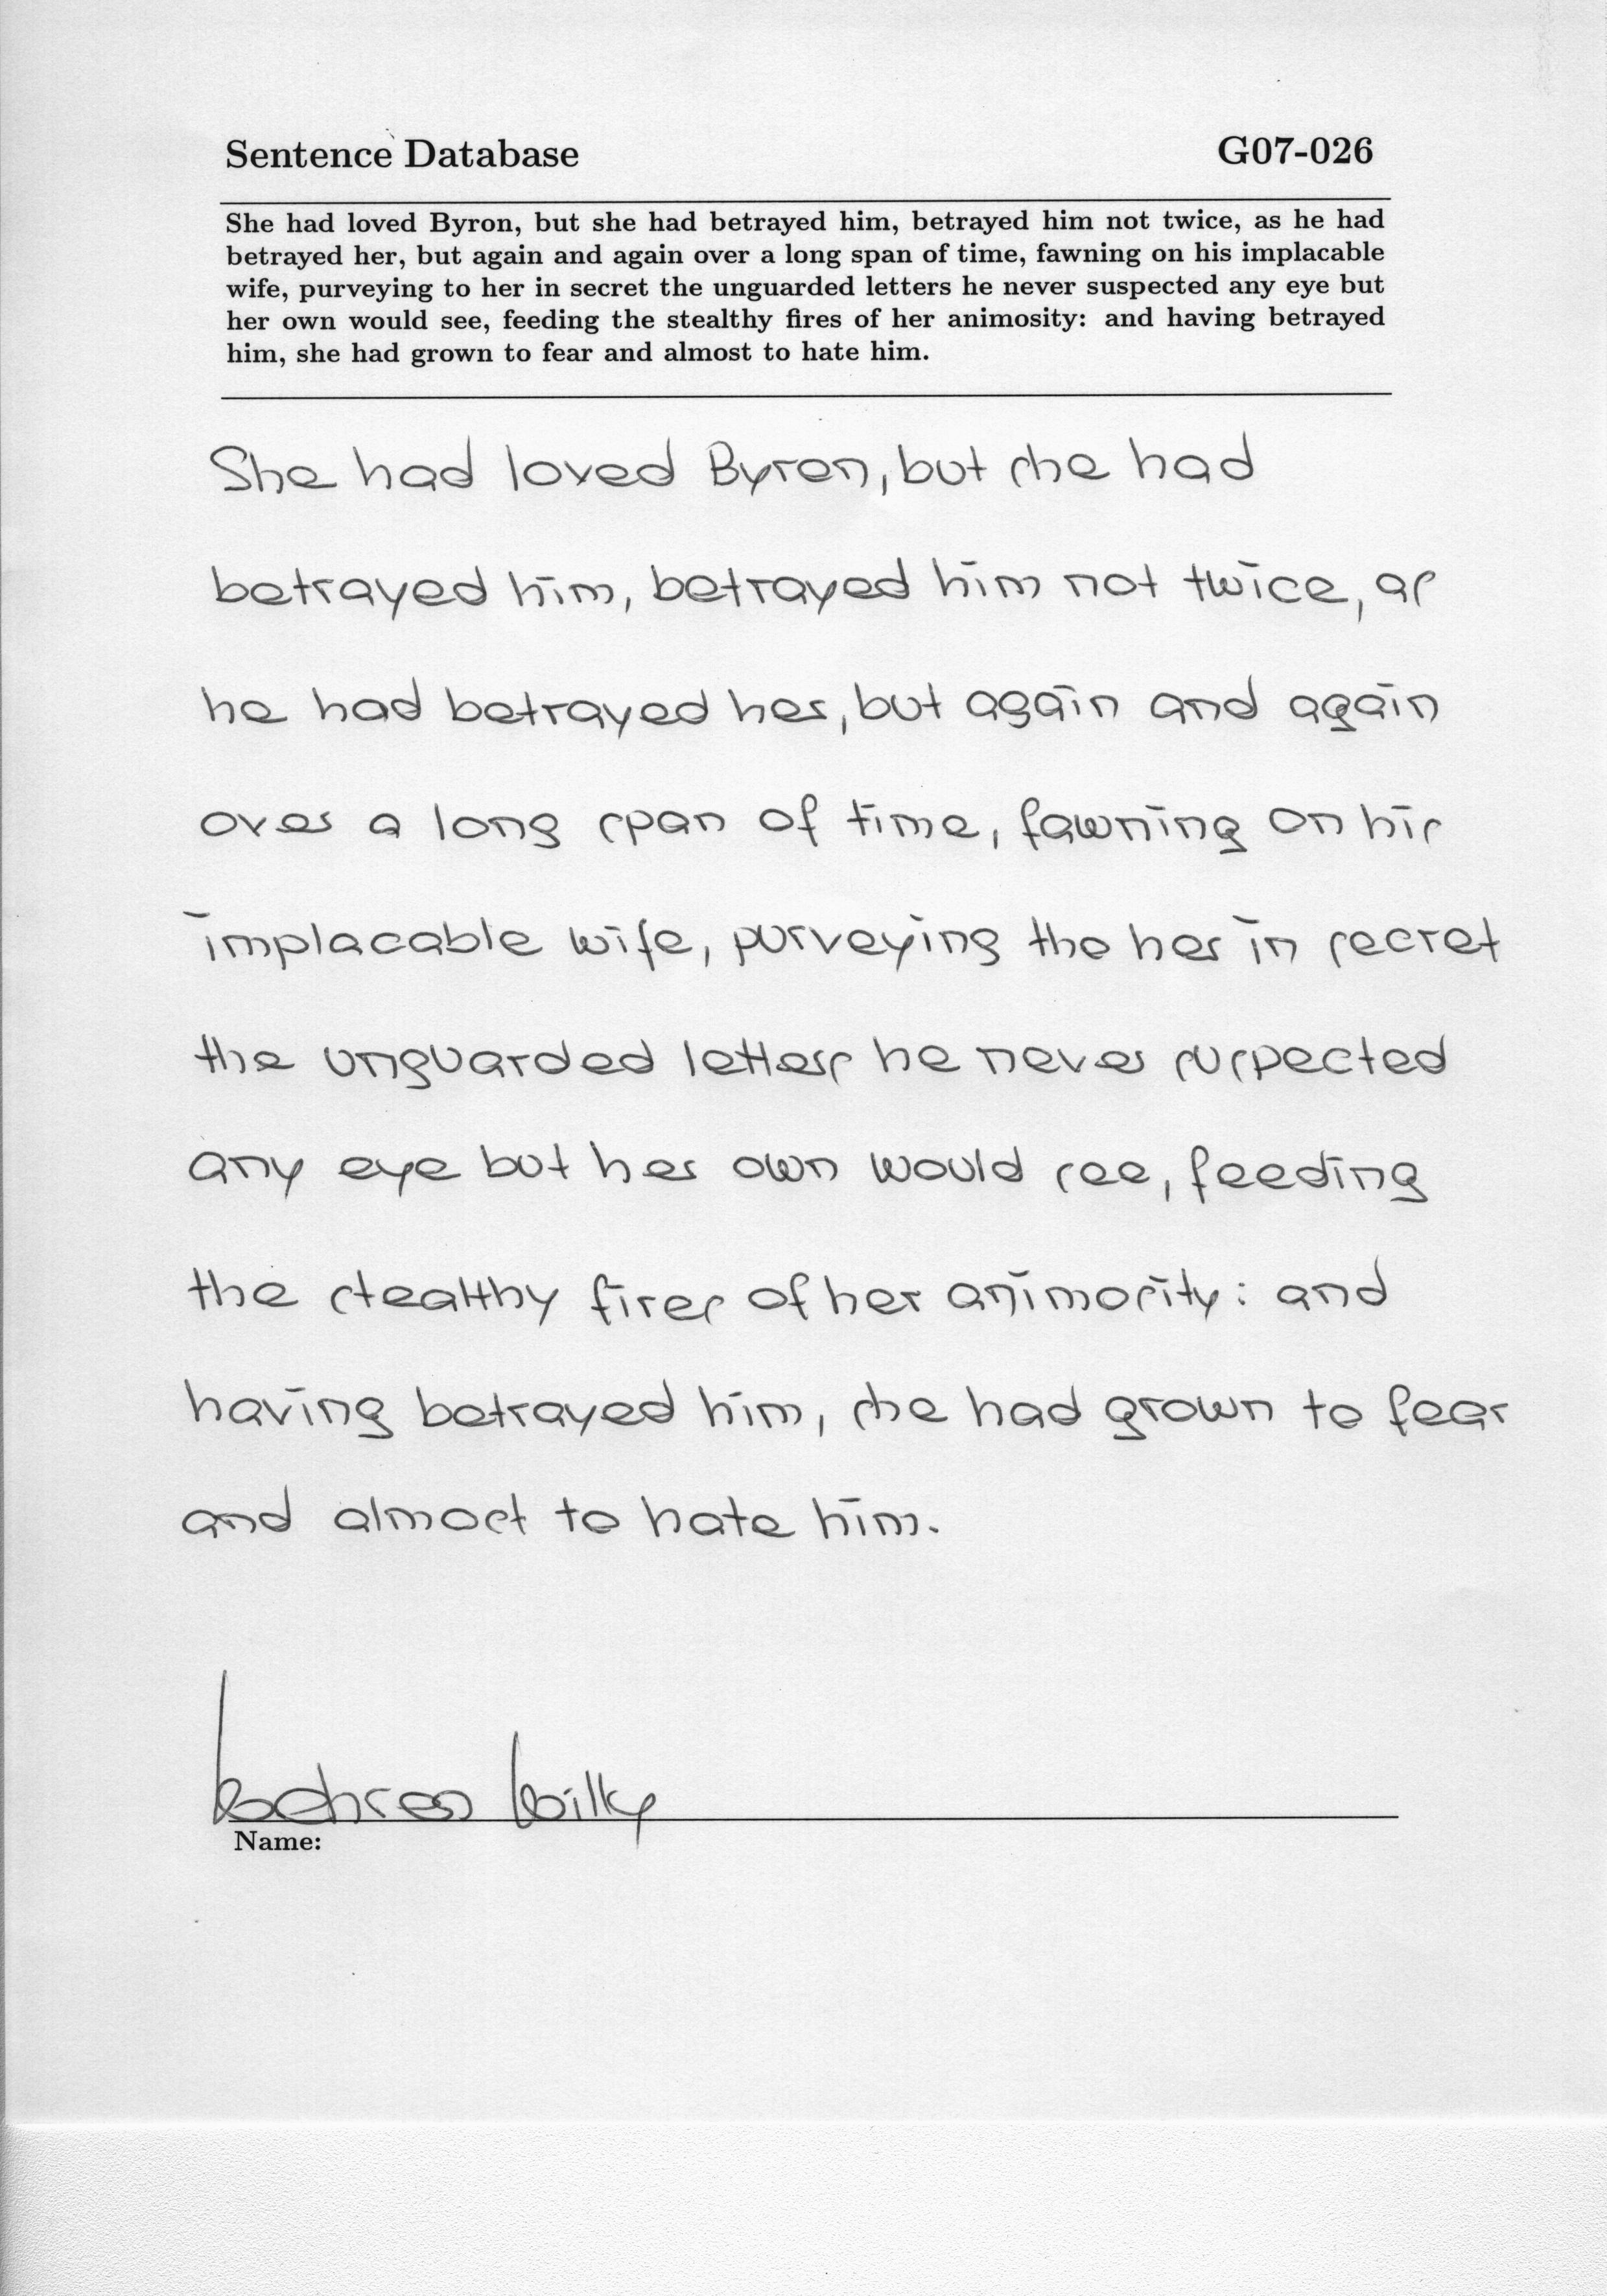 Sentence Database G07-026
She had loved Byron, but she had betrayed him, betrayed him not twice, as he had
betrayed her, but again and again over a long span of time, fawning on his implacable
wife, purveying to her in secret the unguarded letters he never suspected any eye but
her own would see, feeding the stealthy fires of her animosity: and having betrayed
him, she had grown to fear and almost to hate him.
She had loved Byron, but she had
betrayed him, betrayed him not twice, as
he had betrayed her, but again and again
over a long span of time, fawning on his
implacable wife, purveying tho her in secret
the unguarded letters he never suspected
any eye but her own would see, feeding
the stealthy fires of her animosity: and
having betrayed him, she had grown to fear
and almost to hate him.
Name: